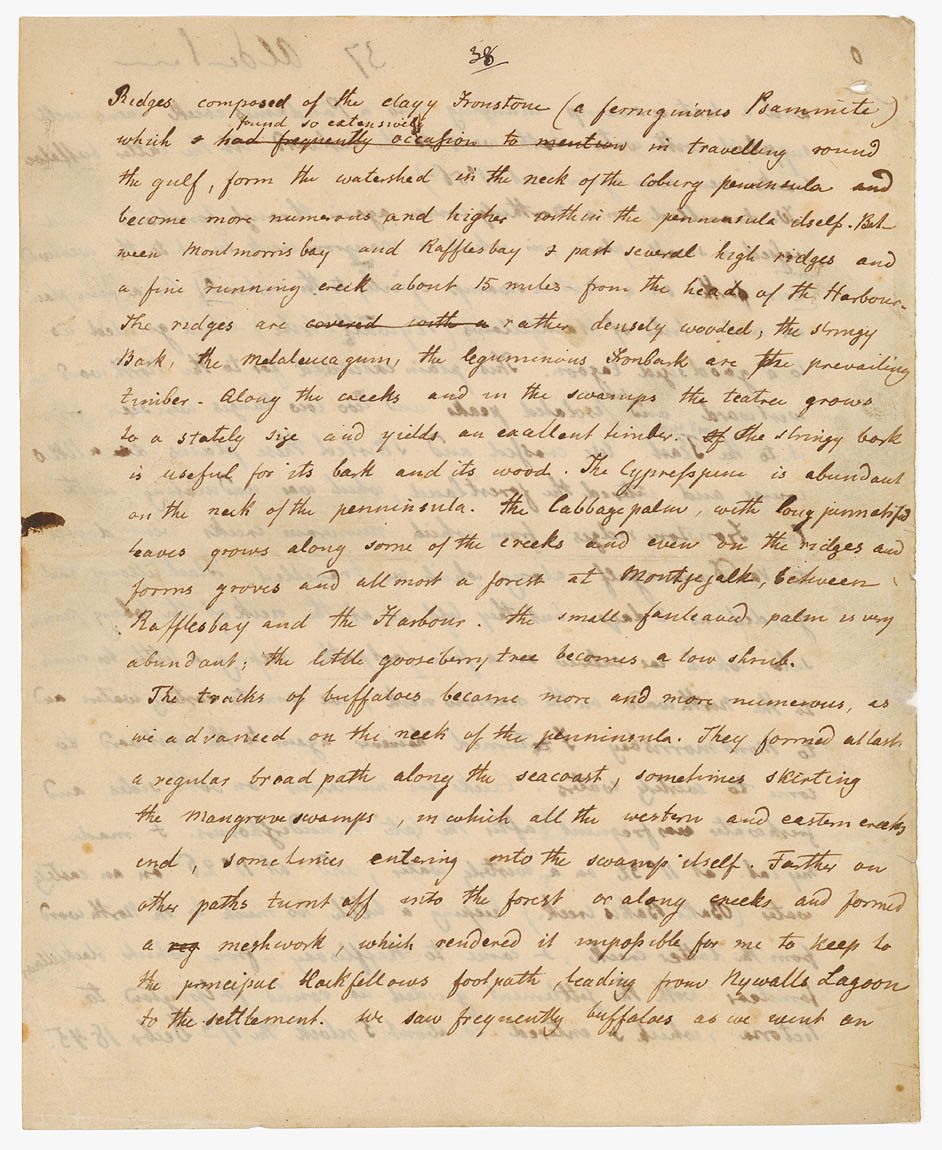 38
Ridges composed of the clayy Ironstone (a ferruginous Psammite)
found so extensively
which I had frequently occasion to mention in travelling round
the gulf, form the watershed in the neck of the Coburg peninsula and
become more numerous and higher within the penninsula itself. Bet
ween Montmorrisbay and Rafflesbay I past several high ridges and
a fine running creek about 15 miles from the head of the Harbour.
The ridges are covered with a rather densely wooded; the stringy
Bark, the Melaleuca gum, the leguminous Ironbark are the prevailing
timber. Along the creeks and in the swamps the teatree grows
to a stately size and yields an excellent timber. Of the stringy bark
is useful for its bark and its wood. The Cypresspine is abundant
on the neck of the penninsula. The Cabbagepalm, with long pinnatifid
leaves grows along some of the creeks and even on the ridges and
forms groves and allmost a forest at Montjejalk, between
Rafflesbay and the Harbour. The small fanleaved palm is very
abundant; the little gooseberry tree becomes a low shrub.
The tracks of buffaloes became more and more numerous, as
we advanced on the neck of the penninsula. They formed at last
a regular broad path along the seacoast, sometimes skirting
the Mangrove swamps, in which all the western and eastern creeks
end, sometimes entering into the swamp itself. Farther on
other paths turnt off into the forest or along creeks and formed
a reg meshwork, which rendered it impossible for me to keep to
the principal blackfellows footpath, leading from Nywalls Lagoon
to the settlement. We saw frequently buffaloes as we went on